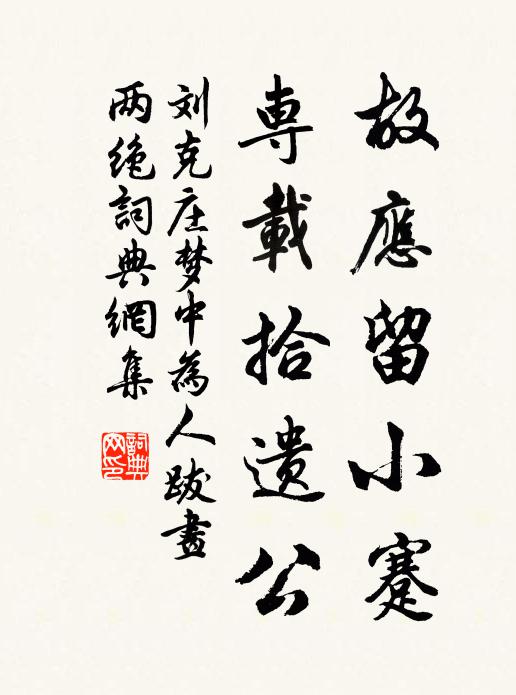 故應留小蹇
専載拾遺公
刘克庄梦中為人跋畫
两绝詞典網集
詞典网印